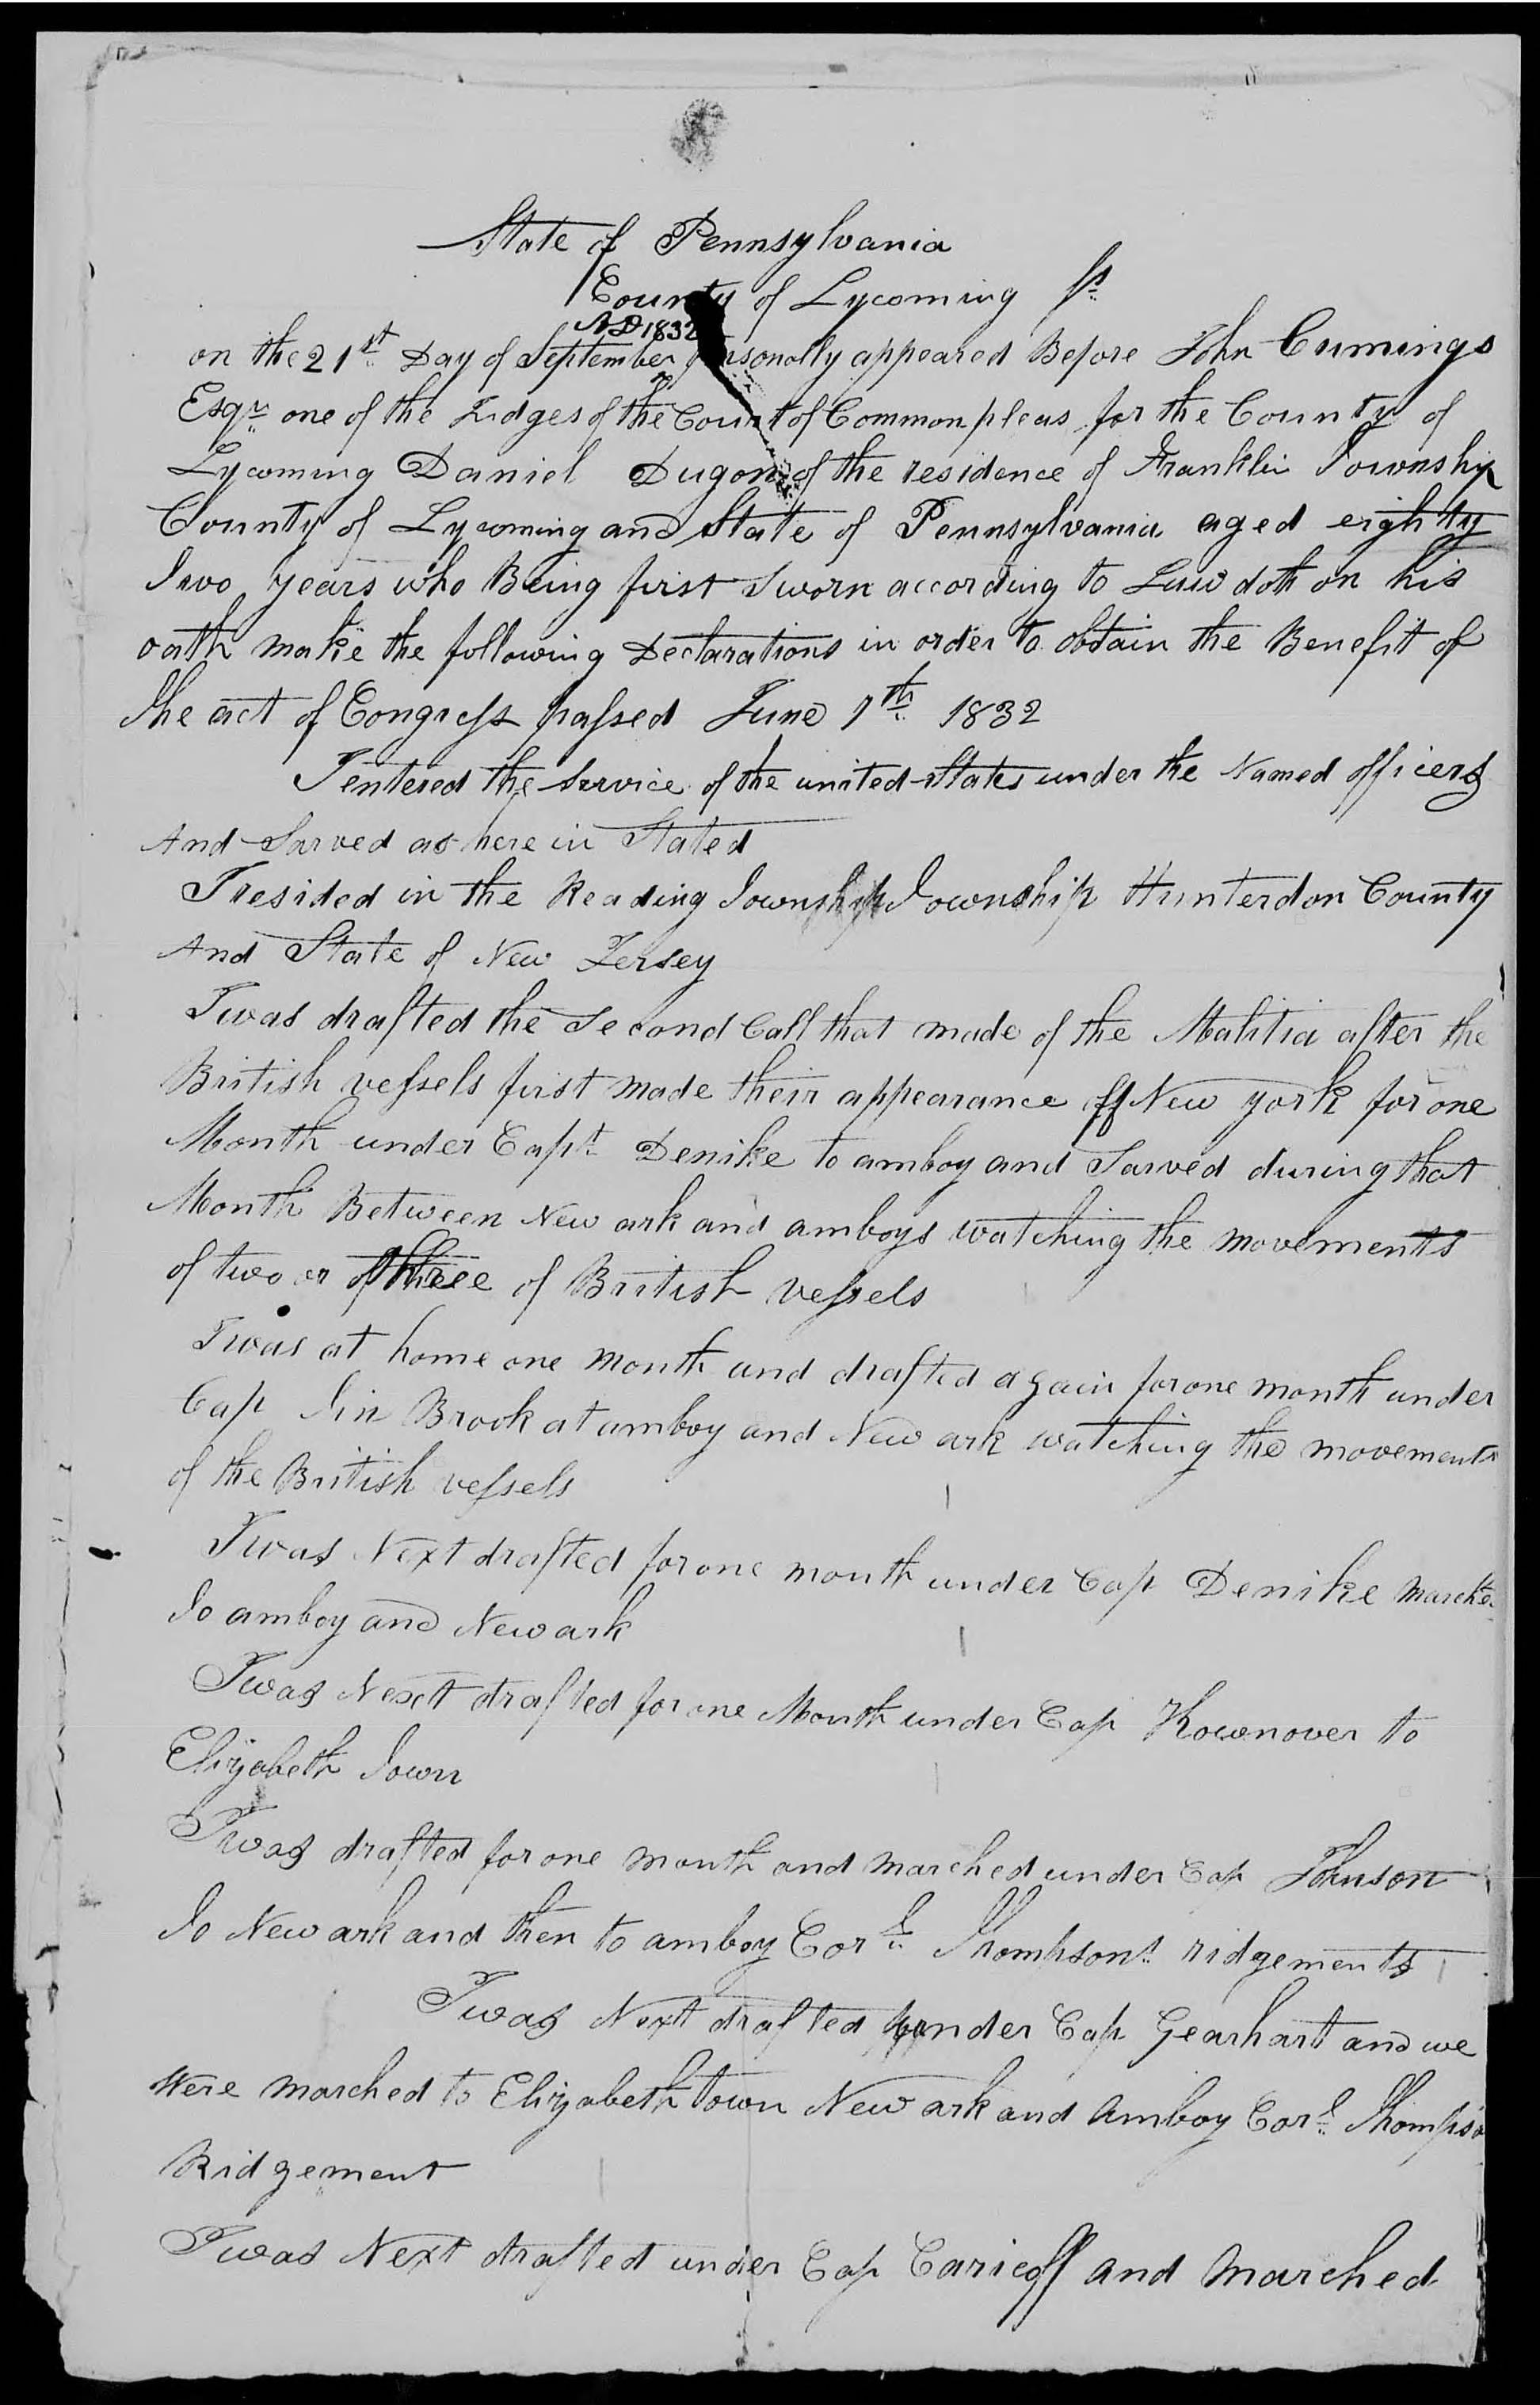 State of Pennsylvania
County of Lycoming Ss
AD 1832
on the 21st Day of September personally appeared Before John Cumings
Esqr one of the Judges of the Court of Common pleas for the County of
Lycoming Daniel Dugon of the residence of Franklin Township
County of Lycoming and State of Pennsylvania aged eighty
Two years who Being first Sworn according to Law doth on his
oath make the following Declarations in order to obtain the Benefit of
the act of Congress passed June 7th 1832
I entered the Service of the united States under the Named officers
And Sarved as here in Stated
I resided in the Reading Township Township Hunterdon County
And State of New Jersey
I was drafted the Second Call that made of the Malitia after the
British vessels first made their appearance off New york for one
Month under Capt Denike to amboy and Sarved during that
Month Between New ark and amboys watching the movements
of two or three of British vessels
I was at home one month and drafted again for one month under
Cap Brook at amboy and New ark watching the movements
of the British vessels
I was Next drafted for one month under Cap Denike marched
To amboy and Newark
I was Nextt drafted for one Month under Cap Kownover to
Elizabeth Town
I was drafted for one month and marched under Cap Johnson
To New ark and then to amboy Corl Thompsons ridgements
I was Next drafted under Cap Gearhart and we
Were marched to Elizabeth town New ark and Amboy Corl Thompso
Ridgement
I was Next drafted under Cap Caricoff and marched